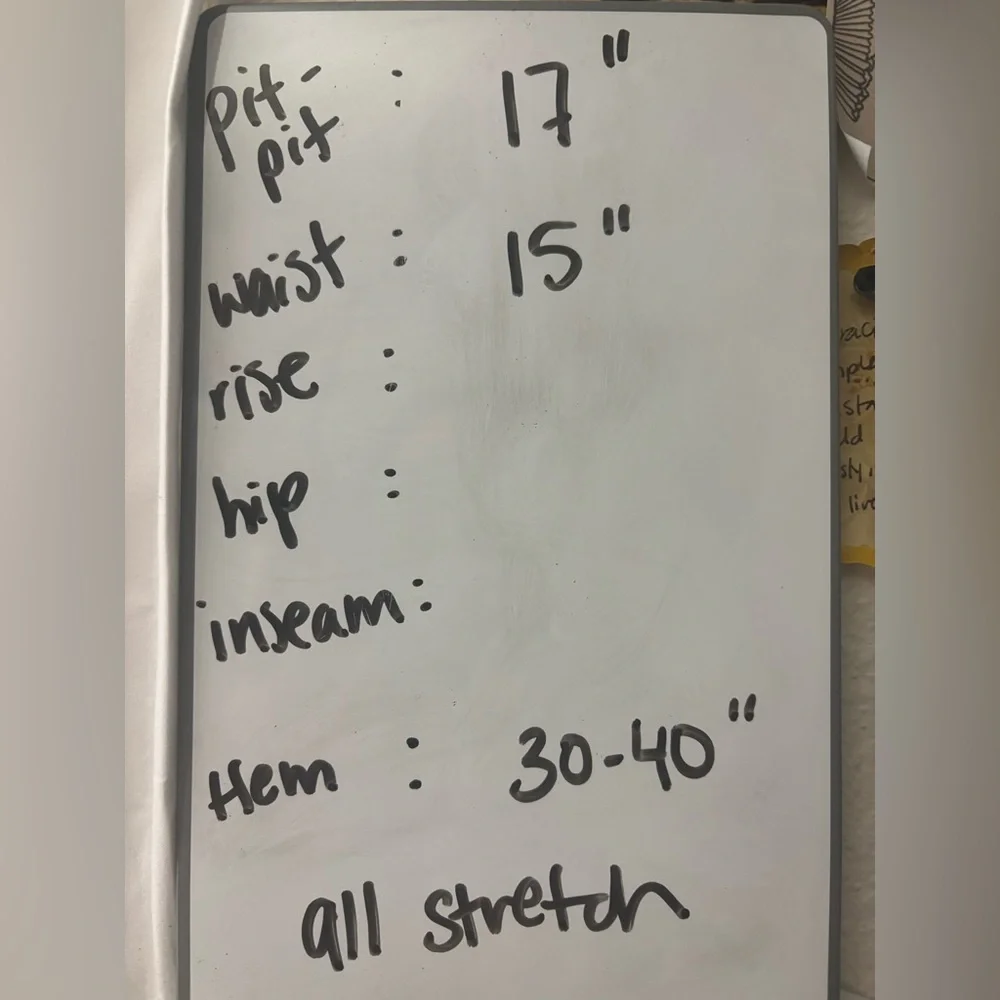 pit- : 17"
pit
waist : 15"
rise :
hip :
inseam:
Hem : 30-40"
all stretch